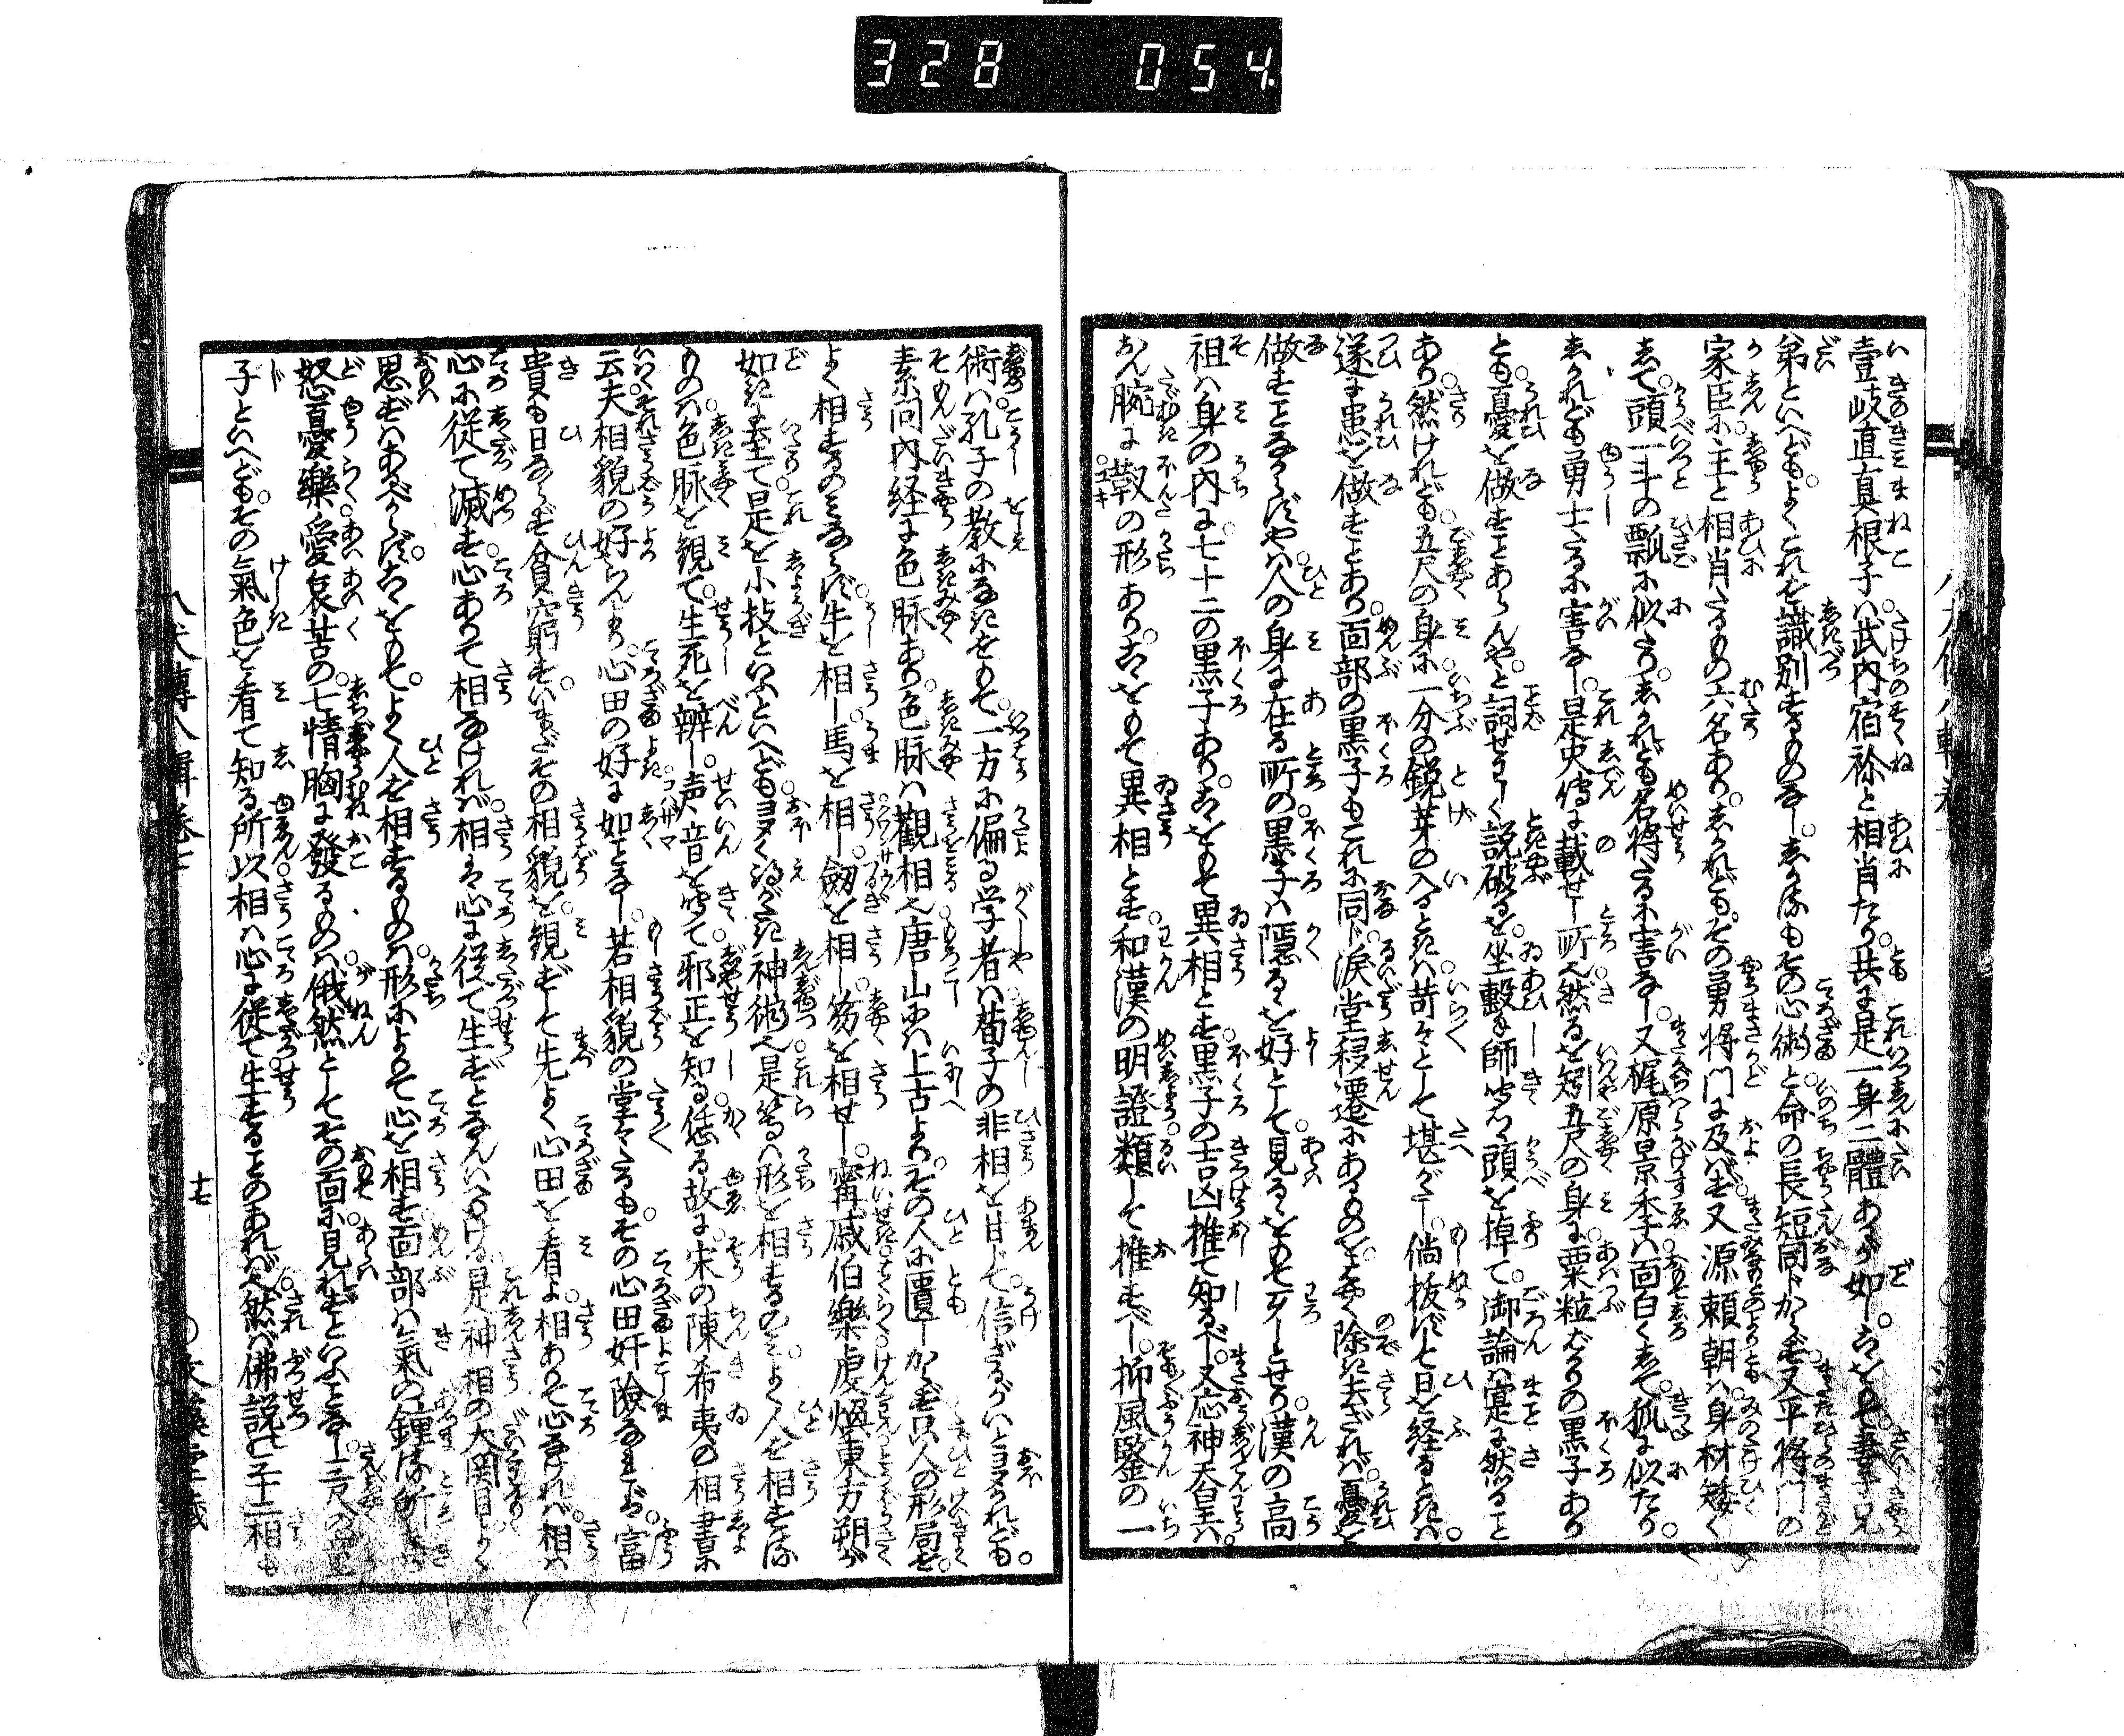 328 054
壹岐直真根子ハ武内宿祢と相肖たり。共に是一身二體あるが如し。こをもて妻子兄
弟といへども。よくこれを識別するものなし。しかれどもその心術と命の長短同じからず。又平将門の
家臣ホ主と相肖たるもの六名あり。しかれども。その勇将門に及ばず。又源頼朝ハ身材矮く
して。頭一斗の瓢に似たり。しかれども名将たるに害なし。又梶原景季ハ面白くして。狐に似たり。
しかれども勇士たるに害なし。是史傳に載せし所也。然るを矧五尺の身に粟粒ばかりの黒子あり
とも。憂を做すことあらんや。と詞せわしく説破るを。坐轂き師ハうち頭を掉て。御論ハ寔に然ること
あり。然けれども。五尺の身に一分の鋭芽の入るときハ。苛々として堪がたし。倘抜ずして日を経るときハ。
遂に患を做すことあり。面部の黒子もこれに同じ。涙堂移遷にあるものを。とく除き去ざれバ。憂を
做すことなからずや。人の身に在る所の。黒子ハ隠るゝを好とし。見るゝをもて歹しとせり。漢の高
祖ハ身の内に。七十二の黒子あり。こをもて異相とす。黒子の吉凶推て知るべし。又応神天皇ハ。
おん腕に鞆の形あり。こをもて異相とす。和漢の明證類して推すべし。抑風鑒の一
術ハ。孔子の教になきをもて。一方に偏る学者ハ。荀子の非相を甘じて。信ざるがいと夛かれども。
素問内経に色脉あり。色脉ハ觀相也。唐山にハ上古より。その人に匱しからず。只人の形局を。
よく相するのみならず。牛を相し。馬を相し。劔を相し。笏を相せし。甯戚伯樂虔煴東方朔が
如きに至て是を小技といふといへども。夛く得がたき神術也。是等ハ形を相するのみ。よく人を相する
ものハ。色脉を観て。生死を辨じ。声音を聴て邪正を知る。恁る故に。宋の陳希夷の相書に
云。夫相貌の好らんより。心田の好に如ことなし。若相貌の堂々たるも。その心田奸險なるときハ。富
貴も日ならず貧窮す。いまだその相貌を観ずして先よく心田を看よ。相ありて心なけれバ。相ハ
心に従て滅す。心ありて相なけれバ。相ハ又心に従て生ずとなんいへりける。是神相の大関目。よく
思ずハあるべからず。こをもて。よく人を相するものハ。形によりて心を相す。面部ハ氣の鍾る所。
怒憂樂。愛哀苦の。七情胸に發るものハ。俄然としてその面に見れずといふことなし。三尺の童
子といへども。その氣色を看て知る所以。相ハ心に従て生ずることのあれバ也。然バ佛説。三十二相も
八犬傳八輯巻七
十七